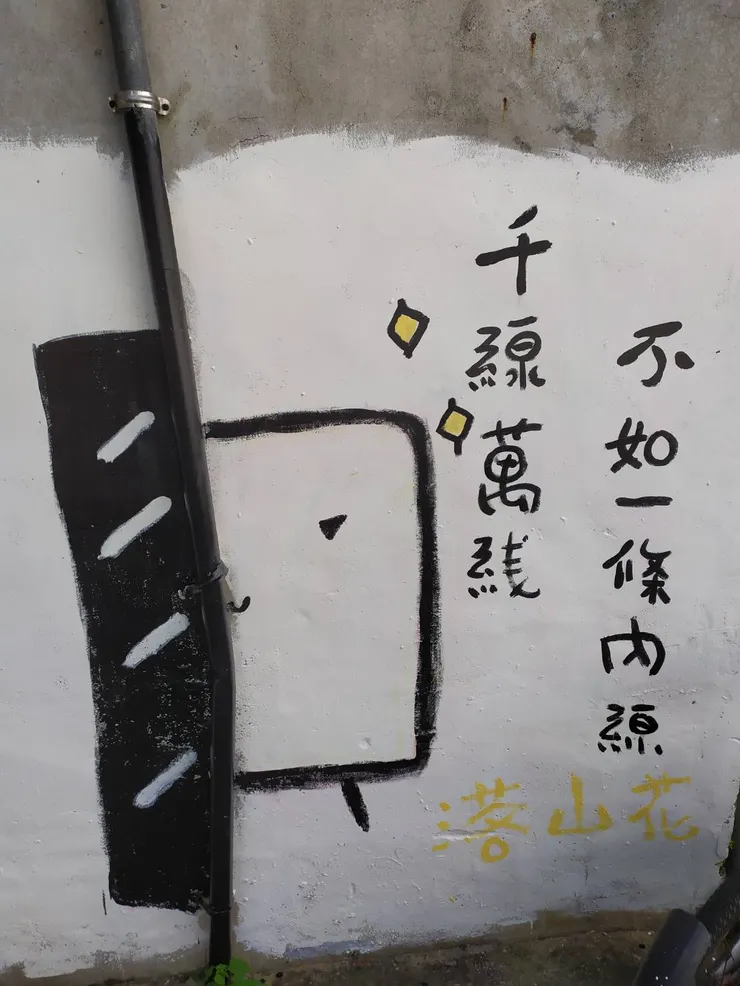 千線萬綫
不如一條內線
落山花